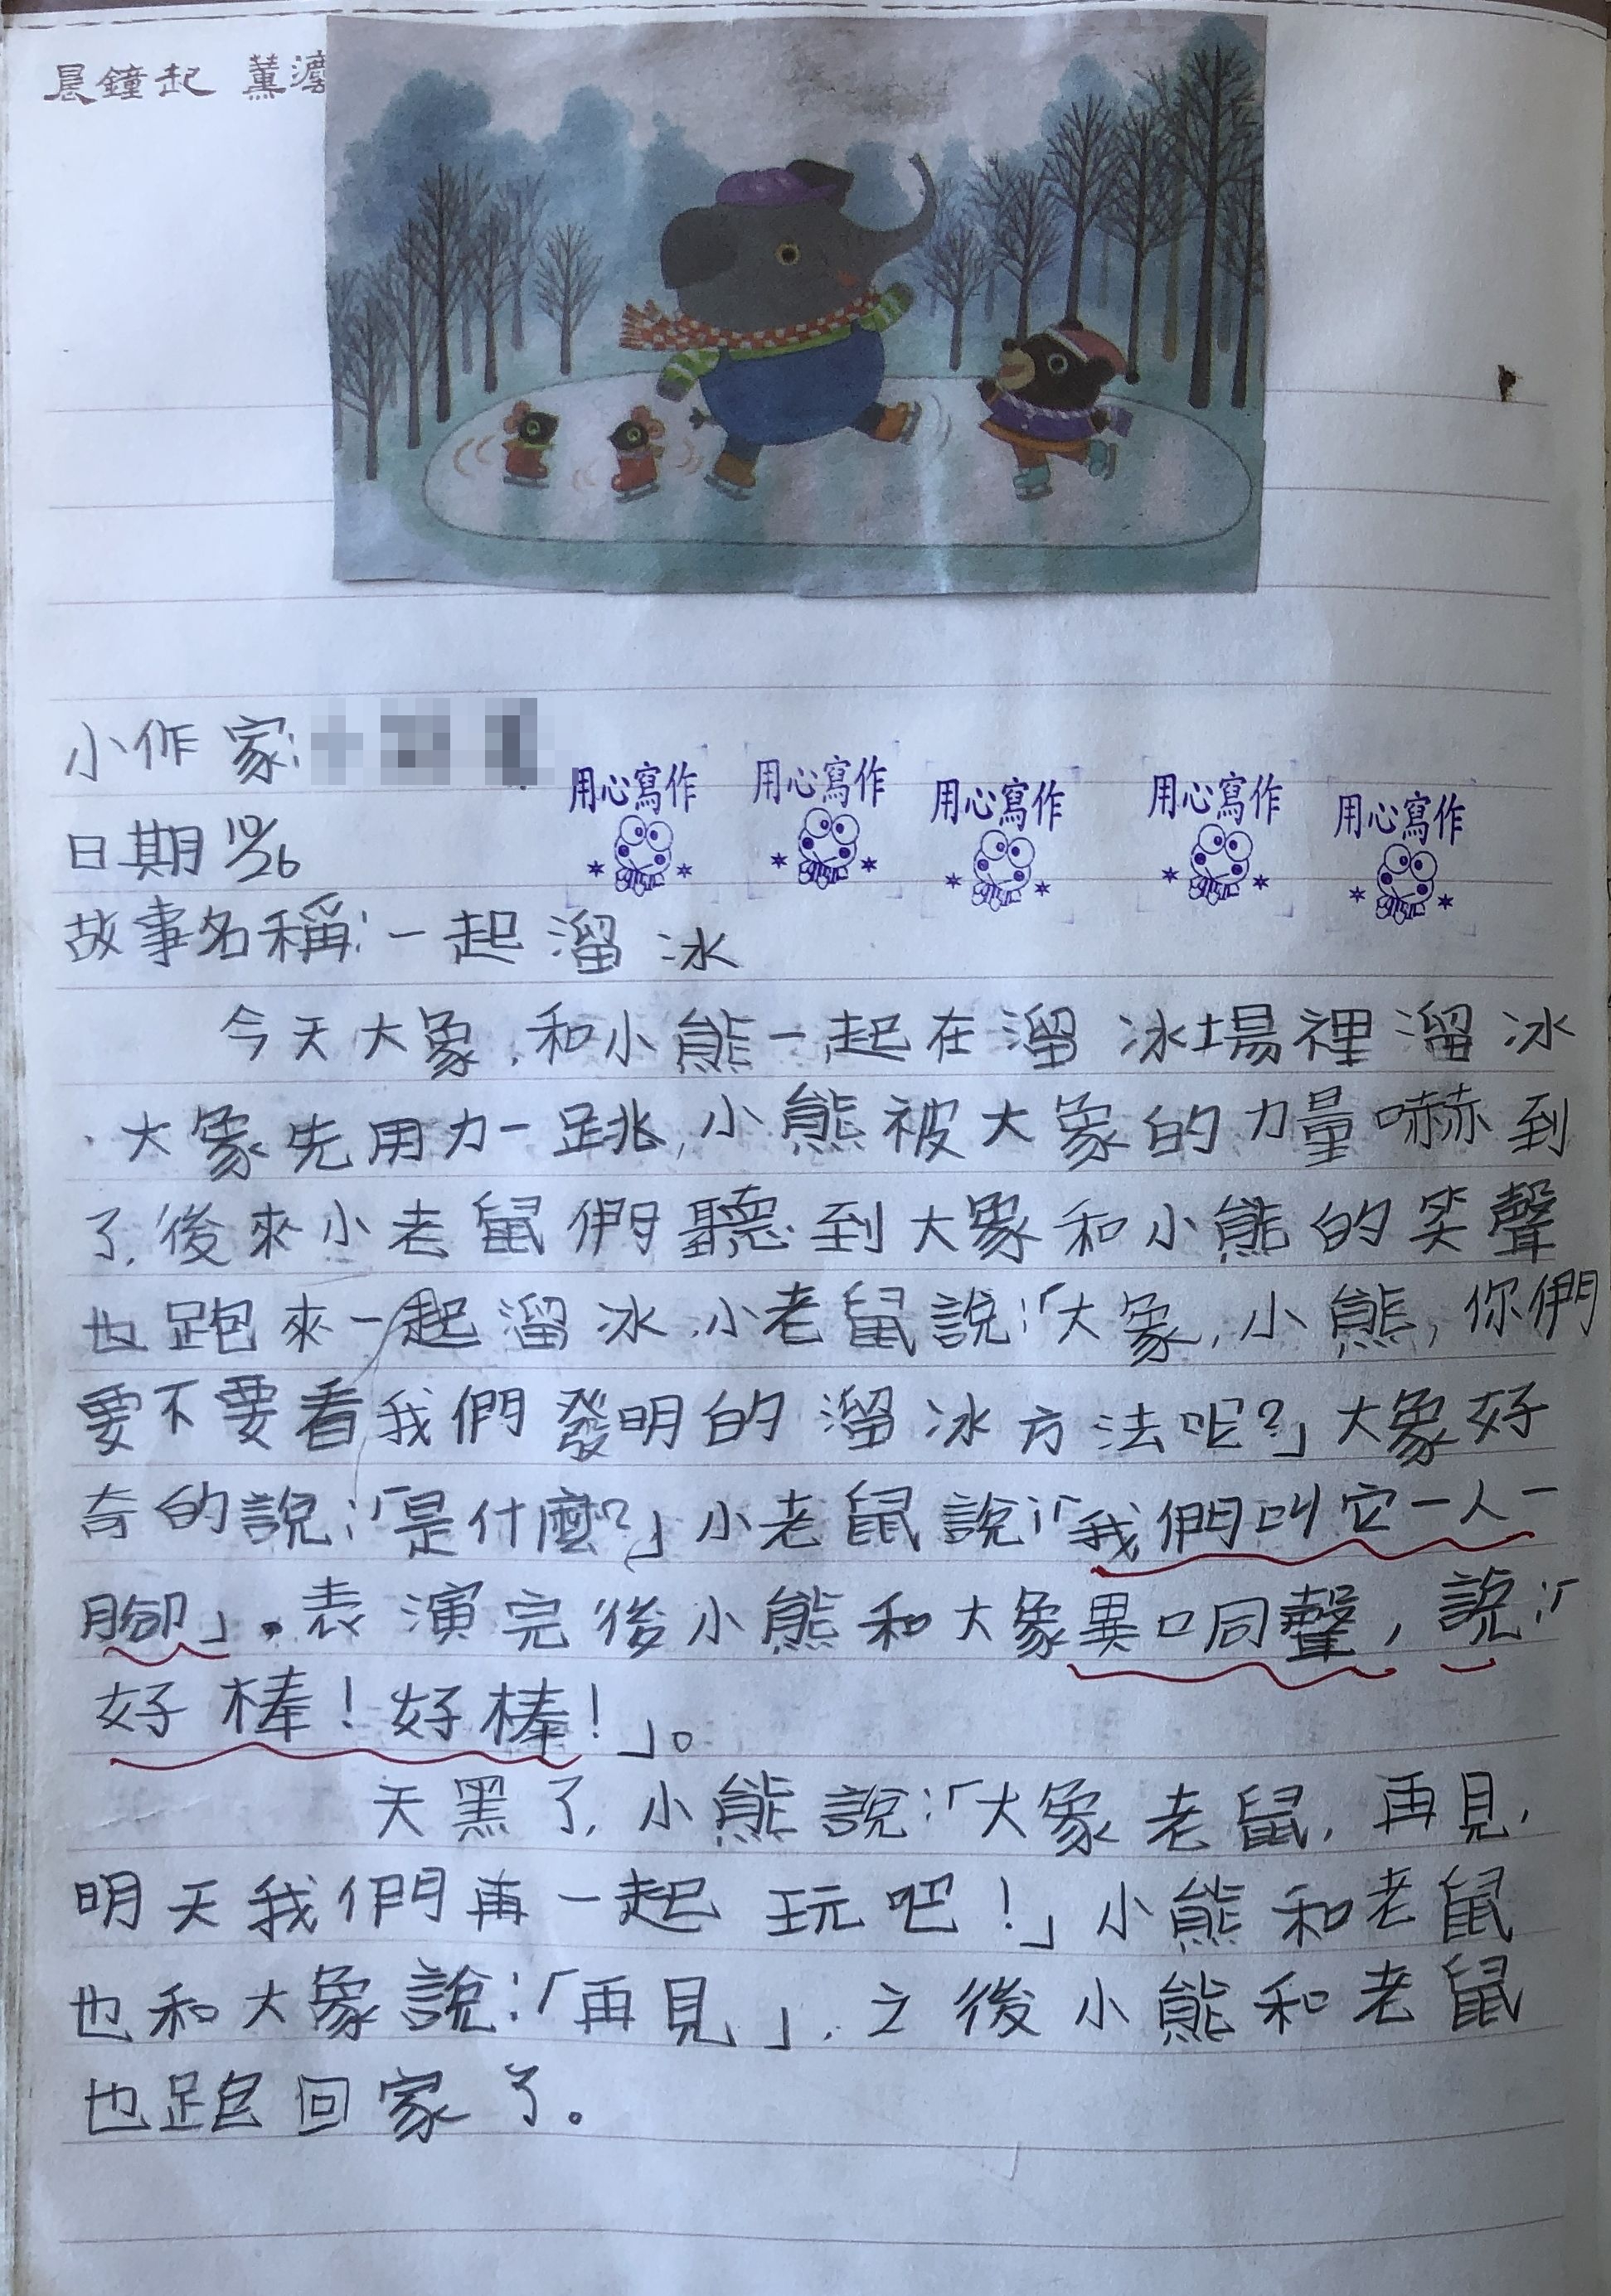 晨鐘起 薰
小作家:
日期 10/26
用心寫作
用心寫作
用心寫作
用心寫作
用心寫作
故事名稱:一起溜冰
今天大象,和小熊一起在溜冰場裡溜冰
,大象先用力一跳,小熊被大象的力量嚇到
了,後來小老鼠們聽到大象和小熊的笑聲
也跑來一起溜冰,小老鼠說:「大象,小熊,你們
要不要看我們發明的溜冰方法呢?」大象好
奇的說:「是什麼?」小老鼠說:「我們叫它一人一
腳」。表演完後小熊和大象異口同聲,說:「
好棒!好棒!」。
天黑了,小熊說:「大象老鼠,再見,
明天我們再一起玩吧!」小熊和老鼠
也和大象說:「再見」,之後小熊和老鼠
也跑回家了。